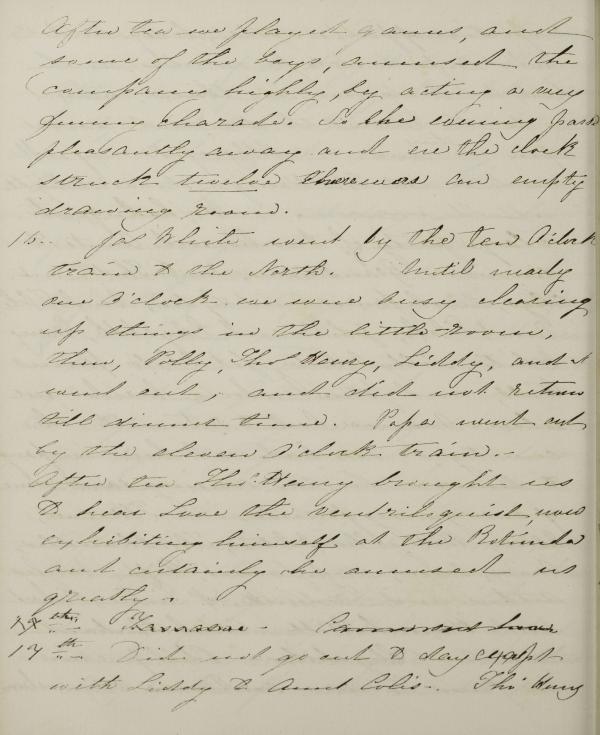 After tea we played games, and
some of the boys, amused the
company highly, by acting a very
funny charade. So the evening pass'd
pleasantly away and ere the clock
struck twelve there was an empty
drawing room.
16.. Jas White went by the ten O'clock
train to the North. Until nearly
one O'clock we were busy clearing
up things in the little-room,
then, Polly, Thos Henry, Liddy, and I
went out, and did not return
till dinner time. Papa went out
by the eleven O'clock train.-
After tea Thos. Henry brought us
to hear Love the ventriloquist, now
exhibiting himself at the Rotunda
and certainly he amused us
greatly.
17th
17th Did not go out to day except
with Liddy to Aunt Colis-. Thos Henry